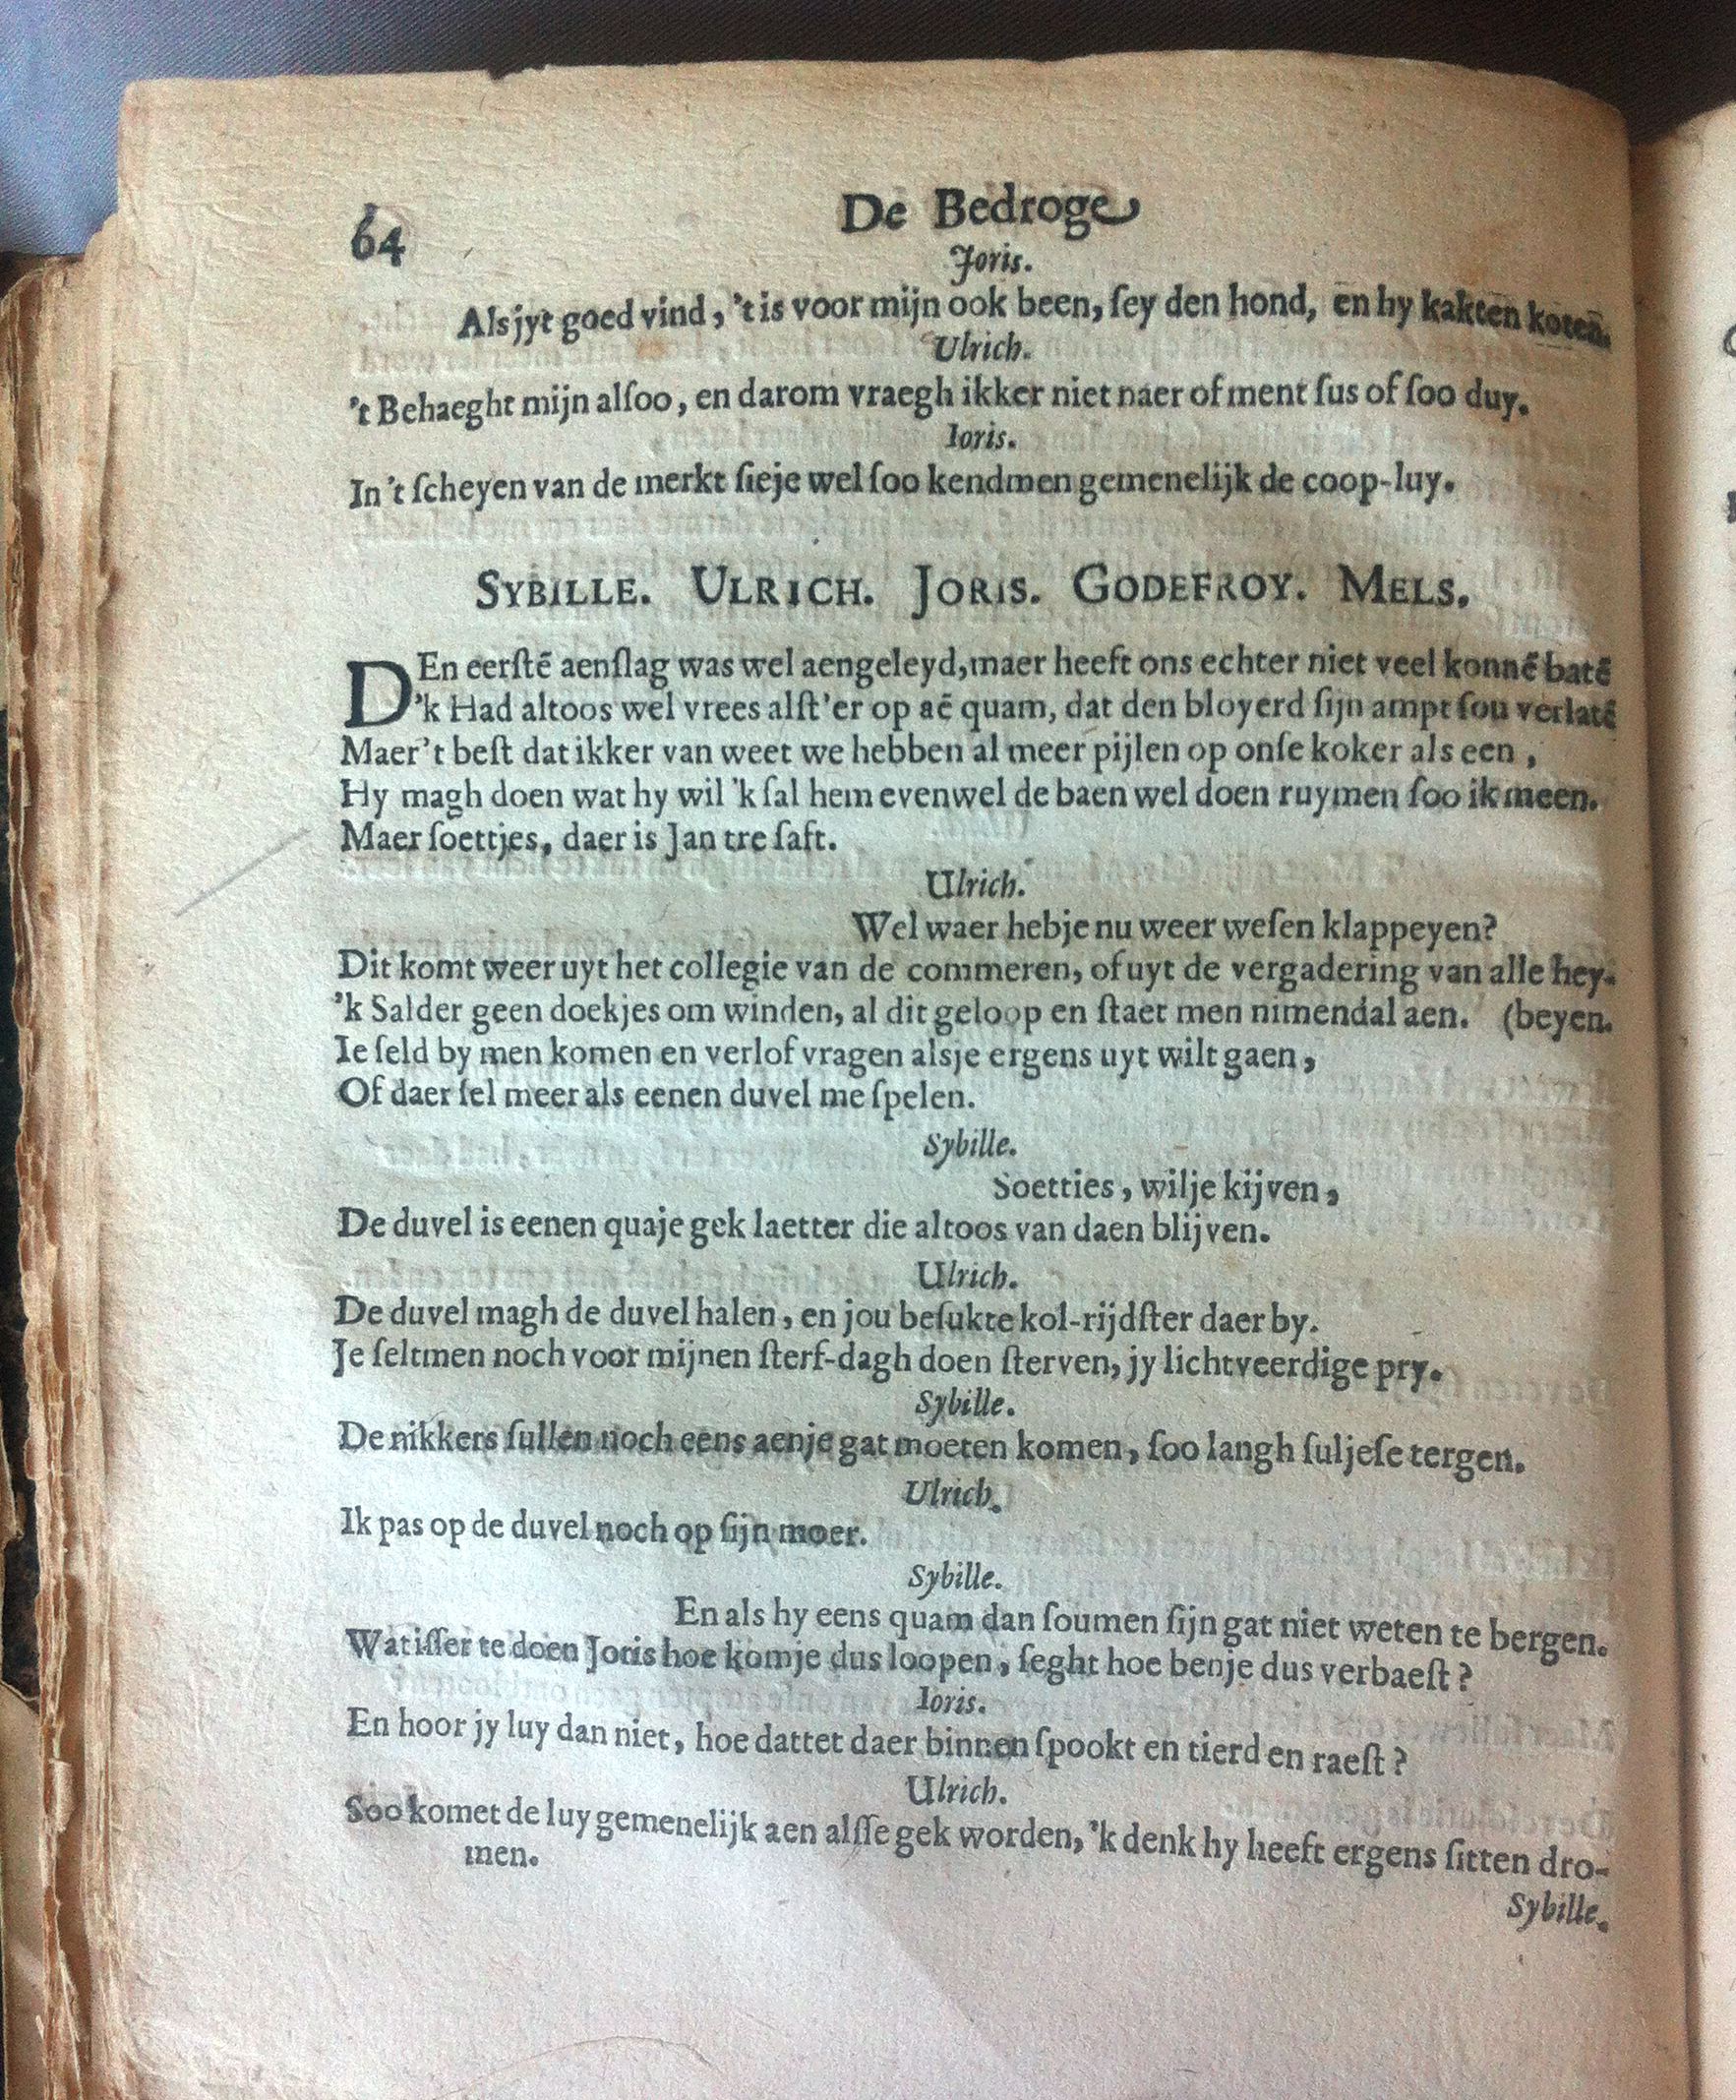 64
De Bedroge
Joris.
Als jyt goed vind, 't is voor mijn ook been, ſey den hond, en hy kakten koten.
Ulrich.
't Behaeght mijn alſoo, en darom vraegh ikker niet naer of ment ſus of ſoo duy.
Ioris.
In 't ſcheyen van de merkt ſieje wel ſoo kendmen gemenelijk de coop-luy.
SYBILLE. ULRICH. JORIS. GODEFROY. MELS.
DEn eerſtē aenſlag was wel aengeleyd, maer heeft ons echter niet veel konnē batē
'k Had altoos wel vrees alſt'er op aē quam, dat den bloyerd ſijn ampt ſou verlatē
Maer't beſt dat ikker van weet we hebben al meer pijlen op onſe koker als een,
Hy magh doen wat hy wil 'k ſal hem evenwel de baen wel doen ruymen ſoo ik meen.
Maer ſoettjes, daer is Jan tre ſaft.
Ulrich.
Wel waer hebje nu weer weſen klappeyen?
Dit komt weer uyt het collegie van de commeren, of uyt de vergadering van alle hey-
'k Salder geen doekjes om winden, al dit geloop en ſtaet men nimendal aen. (beyen.
Ie ſeld by men komen en verlof vragen alsje ergens uyt wilt gaen,
Of daer ſel meer als eenen duvel me ſpelen.
Sybille.
Soetties, wilje kijven,
De duvel is eenen quaje gek laetter die altoos van daen blijven.
Ulrich.
De duvel magh de duvel halen, en jou beſukte kol-rijdſter daer by.
Je ſeltmen noch voor mijnen ſterf-dagh doen ſterven, jy lichtveerdige pry.
Sybille.
De nikkers ſullen noch eens aenje gat moeten komen, ſoo langh ſuljeſe tergen.
Ulrich.
Ik pas op de duvel noch op ſijn moer.
Sybille.
En als hy eens quam dan ſoumen ſijn gat niet weten te bergen.
Wat iſſer te doen Joris hoe komje dus loopen, ſeght hoe benje dus verbaeſt?
Ioris.
En hoor jy luy dan niet, hoe dattet daer binnen ſpookt en tierd en raeſt?
Ulrich.
Soo komet de luy gemenelijk aen alſſe gek worden, 'k denk hy heeft ergens ſitten dro-
men.
Sybille.